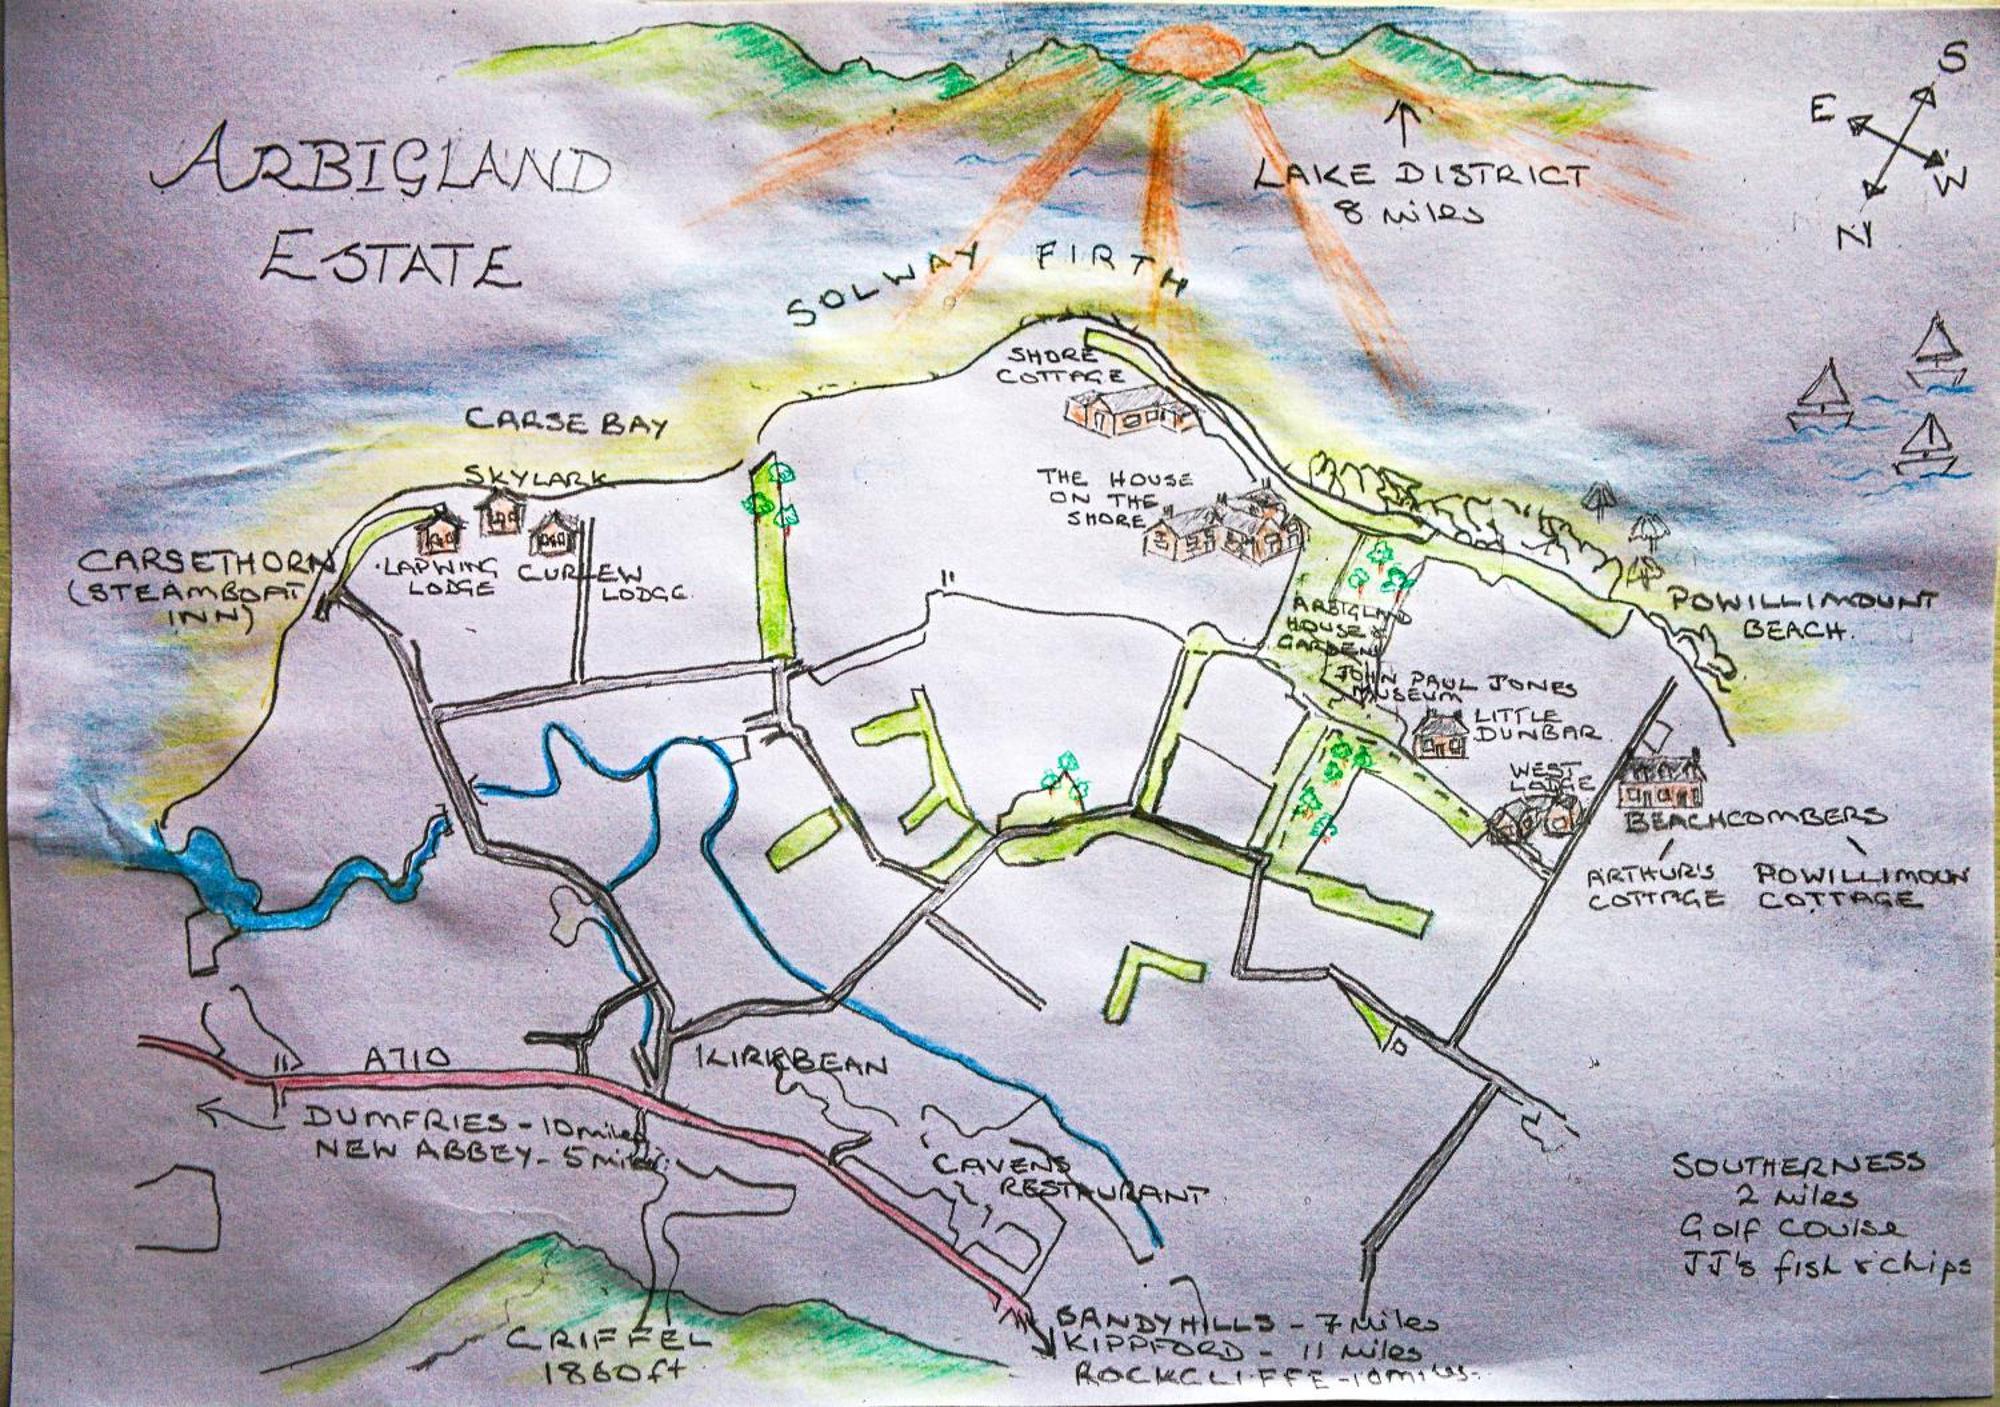 ARBIGLAND
ESTATE
S
E
W
N
LAKE DISTRICT
8 miles
SOLWAY FIRTH
SHORE
COTTAGE
CARSE BAY
SKYLARK
THE HOUSE
ON THE
SHORE
CARSETHORN
(STEAMBOAT
INN)
LAPWING
LODGE
CURLEW
LODGE
ARBIGLAND
HOUSE &
GARDENS
POWILLIMOUNT
BEACH.
JOHN PAUL JONES
MUSEUM
LITTLE
DUNBAR
WEST
LODGE
BEACHCOMBERS
ARTHUR'S
COTTAGE
POWILLIMOUN
COTTAGE
A710
KIRKBEAN
DUMFRIES - 10 miles
NEW ABBEY - 5 miles
CAVENS
RESTAURANT
SOUTHERNESS
2 miles
Golf Course
JJ's fish & chips
CRIFFEL
1860ft
SANDYHILLS - 7 miles
KIPPFORD - 11 miles
ROCKCLIFFE - 10 miles.